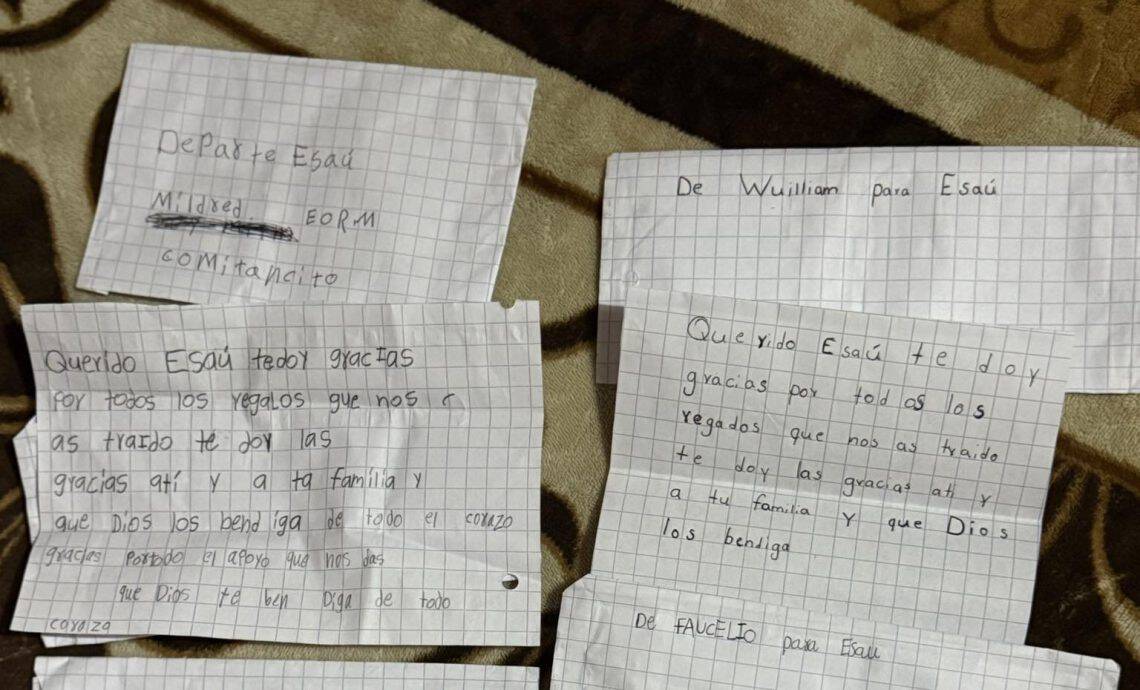 DeParte Esaú
Mildred EORM
comitancito
Querido Esaú tedoy gracias
Por todos los regalos que nos
as traido te doy las
gracias ati y a ta familia y
que Dios los bendiga de todo el corazo
gracias Portodo el apoyo que nos das
que Dios te ben Diga de todo
corazo
De Wuilliam para Esaú
Querido Esaú te doy
gracias por todos los
regados que nos as traido
te doy las gracias ati y
a tu familia y que Dios
los bendiga
De FAUCELIO para Esau